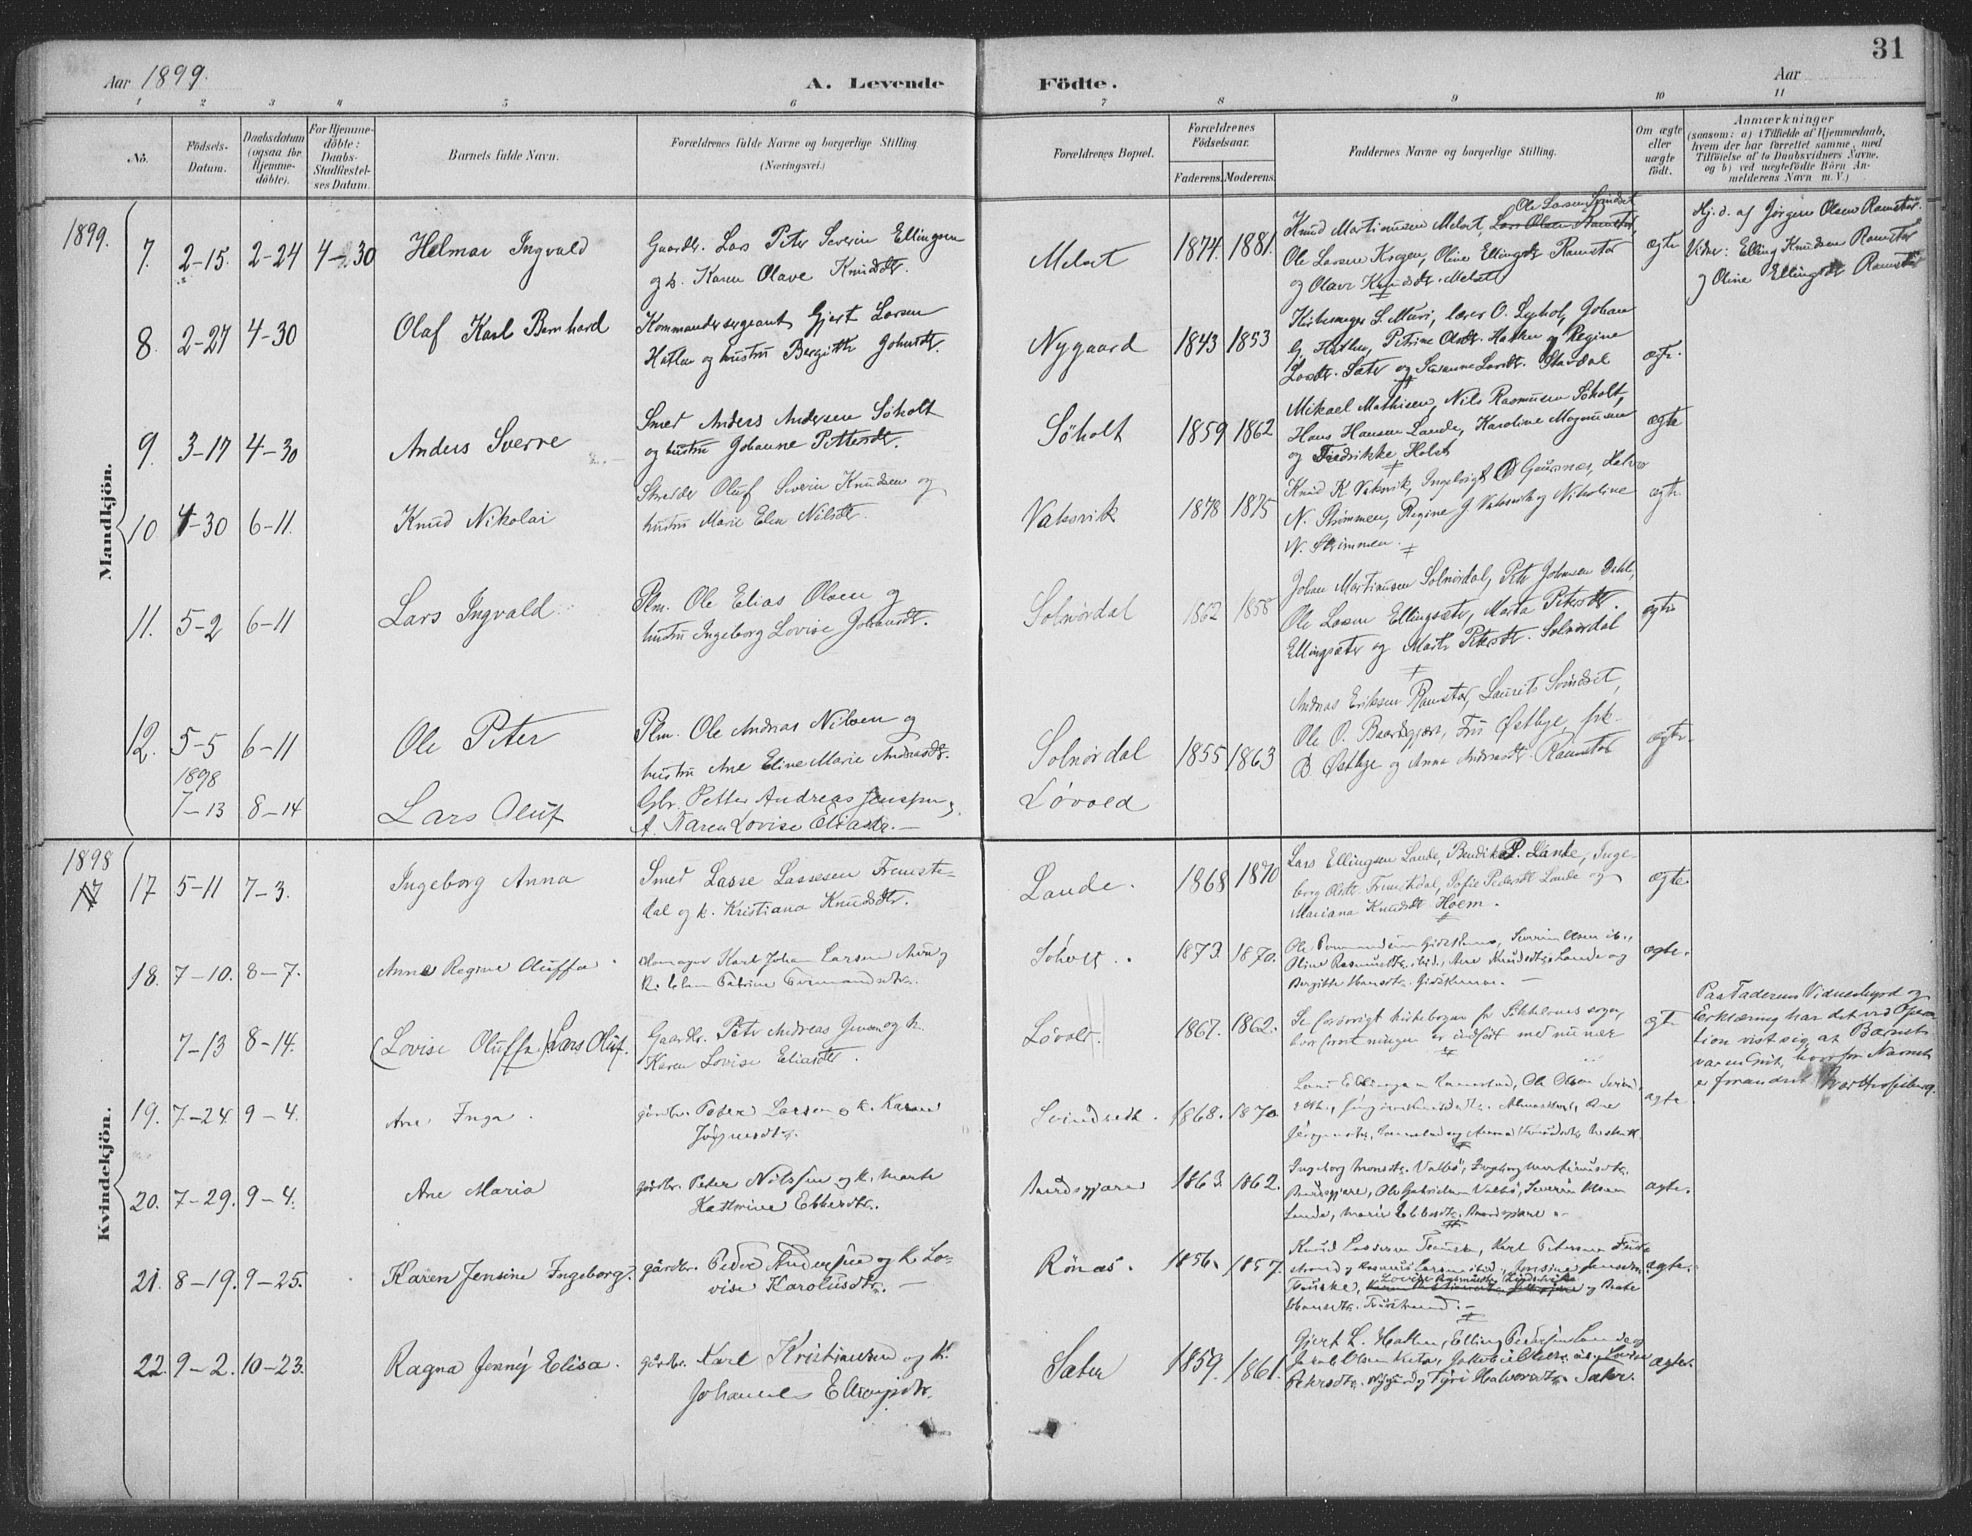 31
Aar 1899.
A. Levende Födte.
Aar
1 2 3 4 5 6 7 8 9 10 11
No.
Födsels-Datum.
Daabsdatum (ogsaa for Hjemme-döbte).
For Hjemme-döbte: Daabs-Stadfæstel-ses Datum.
Barnets fulde Navn.
Forældrenes fulde Navne og borgerlige Stilling (Næringsvei.)
Forældrenes Bopæl.
Forældrenes Födselsaar.
Faderens. Moderens.
Faddernes Navne og borgerlige Stilling.
Om ægte eller uægte födt.
Anmærkninger
(saasom: a) i Tilfælde af Hjemmedaab,
hvem der har forrettet samme, med
Tilföielse af to Daabsvidners Navne.
og b) ved uægtefödte Börn An-
melderens Navn m. V.)
Mandkjön.
1899.
7. 2-15. 2-24 4-30 Helmar Ingvald
Gaardbr. Lars Peter Severin Ellingsen
og h. Karen Olave Knudsdtr.
Melset 1874. 1881.
Ole Larsen Svindset
Knud Martinusen Melset, Lars Olsen Ramstad,
Ole Larsen Krogen, Oline Ellingsdtr Ramstad
og Olave Knudsdtr. Melset
ægte
Hj. d. af Jørgen Olsen Ramstad.
Vidner: Elling Knudsen Ramstad
og Oline Ellingsdtr Ramstad
8. 2-27 4-30 Olaf Karl Bernhard
Kommandersergeant Gjert Larsen
Hatlen og hustru Bergitte Johnsdtr.
Nygaard 1843 1853
Kirkesanger S. Muri, lærer O. Lyshol, Johan
G. Hatlen, Petrine Olsdtr. Hatlen og Regine
Larsdtr. Sæter og Susanne Larsdtr. Stavdal
ægte.
9. 3-17 4-30 Anders Sverre
Smed Anders Andersen Søholt
og hustru Johanne Pettersdtr.
Søholt 1859 1862
Mikael Mathisen, Nils Rasmusen Søholt,
Hans Hansen Lande, Karoline Magnusen
og Fredrikke Holst
ægte
10 4-30 6-11. Knud Nikolai
Oluf Severin Knudsen og
hustru Marie Elen Nilsdtr.
Vaksvik 1878 1875
Knud K Vaksvik, Ingebrigt O Gausnæs, Halvor
N. Strømmen, Regine J Vaksvik og Nikoline
N. Strømmen.
ægte.
11. 5-2 6-11 Lars Ingvald
Plm. Ole Elias Olsen og
hustru Ingeborg Lovise Johansdtr.
Solnørdal 1862 1858
Johan Martinusen Solnørdal, Petr Johnsen Dahle,
Ole Larsen Ellingsæter, Marta Petersdtr.
Ellingsæter og Marte Petersdtr. Solnørdal
ægte
12. 5-5 6-11 Ole Peter
Plm. Ole Andreas Nilsen og
hustru Ane Eline Marie Andreasdtr.
Solnørdal 1855 1863
Andreas Eriksen Ramstad, Laurits Svindset,
Ole O. Baardsgjære, Fru Østbye, frk.
B Østbye og Anna Andreasdtr. Ramstad
ægte.
1898
7-13 8-14 Lars Oluf
Gbr. Petter Andreas Jensen og
h. Karen Lovise Eliasdtr.
Løvold
Kvindekjön.
1898
17
17 5-11 7-3. Ingeborg Anna
Smed Lasse Lassesen Fremste-
dal og h. Kristiana Knudsdtr.
Lande. 1868 1870
Lars Ellingsen Lande, Bendik P. Lande, Inge-
borg Olsdtr. Fremstedal, Sofie Pedersdtr Lande og
Mariana Knudsdtr Hoem.
ægte.
18. 7-10. 8-7. Anne Regine Oluffa
Karl Johan Larsen
Søholt. 1873. 1870.
ægte.
7-13 8-14. (Lovise Oluffa) Lars Oluf.
Gaardbr. Peter Andreas Jensen og h.
Karen Lovise Eliasdtr.
Løvold. 1867. 1862.
Se forøvrigt kirkebogen for Sikkelvens sogn,
hvor forretningen er indført med numer
ægte
Paa Faderens Vidnesbyrd og
Erklæring har det ved Opera-
tion vist sig at Barnet
var en Gut, hvorfor Navnet
er forandret.
19. 7-24. 9-4. Ane Inga.
gårdbr. Peter Larsen og h. Karen
Jørgensdtr.
Svindseth. 1868. 1870.
ægte.
20. 7-29. 9-4. Ane Maria
gårdbr. Peder Nilssen og h. Marte
Kathrine Ebbesdtr.
Baardsgjære 1863. 1862.
Ingeborg Monsdtr. Valbø, Ingeborg Martinusdtr.
Baardsgjære, Ole Gabrielsen Valbø, Severin Olsen
Lande, Marie Ebbesdtr. Baardsgjære.
ægte.
21. 8-19. 9-25. Karen Jensine Ingeborg.
gårdbr. Peder Andersen og h. Lo-
vise Karolusdtr.
Rønæs. 1856. 1857.
ægte.
22. 9-2. 10-23. Ragna Jenny Elisa.
gårdbr. Karl Kristiansen og h.
Johanne Ellingsdtr.
Sæter 1859. 1861.
Gjert L. Hatlen, Elling Pedersen Lande og
Petersdtr. Nygård og Tyri Halvorsdtr. Sæter.
ægte.